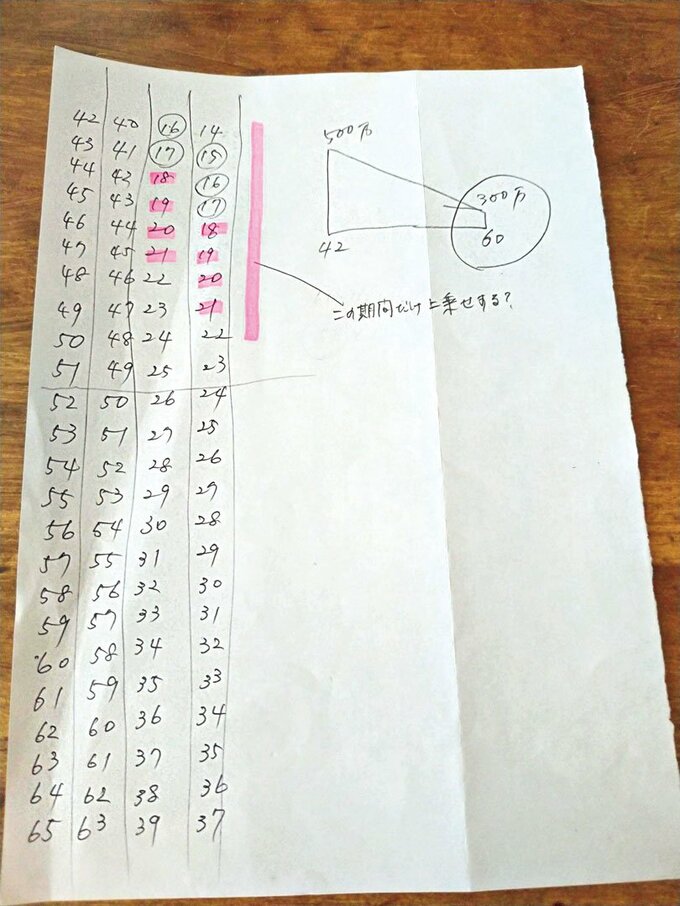 42 40 16 14
43 41 17 15
44 42 18 16
45 43 19 17
46 44 20 18
47 45 21 19
48 46 22 20
49 47 23 21
50 48 24 22
51 49 25 23
52 50 26 24
53 51 27 25
54 52 28 26
55 53 29 27
56 54 30 28
57 55 31 29
58 56 32 30
59 57 33 31
60 58 34 32
61 59 35 33
62 60 36 34
63 61 37 35
64 62 38 36
65 63 39 37
500万
300万
42
60
この期間だけ上乗せする?